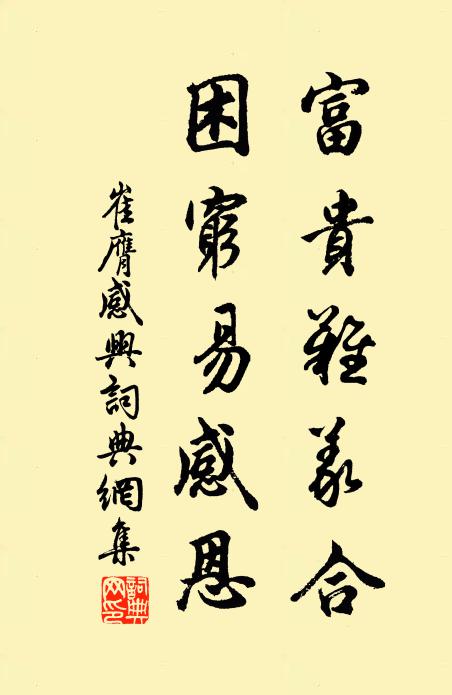 富貴難義合
困窮易感恩
崔膺感興詞典網集
詞典網印